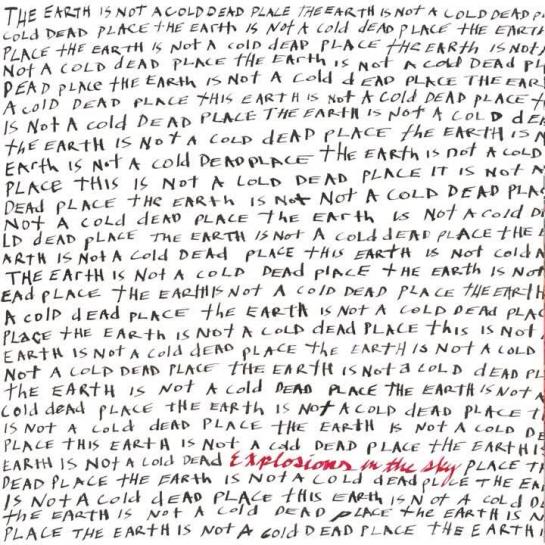 THE EARTH IS NOT A COLD DEAD PLACE THE EARTH IS NOT A COLD DEAD P
COLD DEAD PLACE THE EARTH IS NOT A COLD dEAD PLACE THE EARTH
PLACE THE EARTH IS NOT A COLD dEAD PLACE THE EARTH IS NOT
NOT A COLD dEAD PLACE THE EARTH IS NOT A COLD DEAD PL
DEAD PLACE THE EARTH IS NOT A COLD dEAD PLACE THE EAR
A COLD DEAD PLACE THIS EARTH IS NOT A COLD DEAD PLACE T
IS NOT A COLD DEAD PLACE THE EARTH IS NOT A COLD dE
THE EARTH IS NOT A COLD dEAD PLACE THE EARTH IS N
EARTH IS NOT A COLD DEAD PLACE THE EARTH IS NOT A COLD
PLACE THIS IS NOT A COLD DEAD PLACE IT IS NOT A
DEAD PLACE THE EARTH IS NOT NOT A COLD DEAD PLA
NOT A COLD dEAD PLACE THE EARTH IS NOT A COLD D
LD dEAD PLACE THE EARTH IS NOT A COLD dEAD PLACE THE
ARTH IS NOT A COLD DEAD PLACE THIS EARTH IS NOT COLD A
THE EARTH IS NOT A COLD DEAD PLACE THE EARTH IS NOT
EAD PLACE THE EARTH IS NOT A COLD DEAD PLACE THE EARTH
A COLD DEAD PLACE THE EARTH IS NOT A COLD DEAD PLAC
PLACE THE EARTH IS NOT A COLD dEAD PLACE THIS IS NOT
EARTH IS NOT A COLD dEAD PLACE THE EARTH IS NOT A COLD
NOT A COLD DEAD PLACE THE EARTH IS NOT A COLD DEAD PL
THE EARTH IS NOT A COLD DEAD PLACE THE EARTH IS NOT A
COLD dEAd PLACE THE EARTH IS NOT A COLD DEAD PLACE T
IS NOT A COLD dEAD PLACE THE EARTH IS NOT A COLD DE
PLACE THIS EARTH IS NOT A COLD DEAD PLACE THE EARTH IS
EARTH IS NOT A COLD DEAD Explosions in the sky PLACE TH
DEAD PLACE THE EARTH IS NOT A COLD dEAd PLACE THE EA
IS NOT A COLD dEAD PLACE THIS EARTH IS NOT A COLD D
THE EARTH IS NOT A COLD DEAD PLACE THE EARTH IS N
PLACE THE EARTH IS NOT A COLD DEAD PLACE THE EARTH